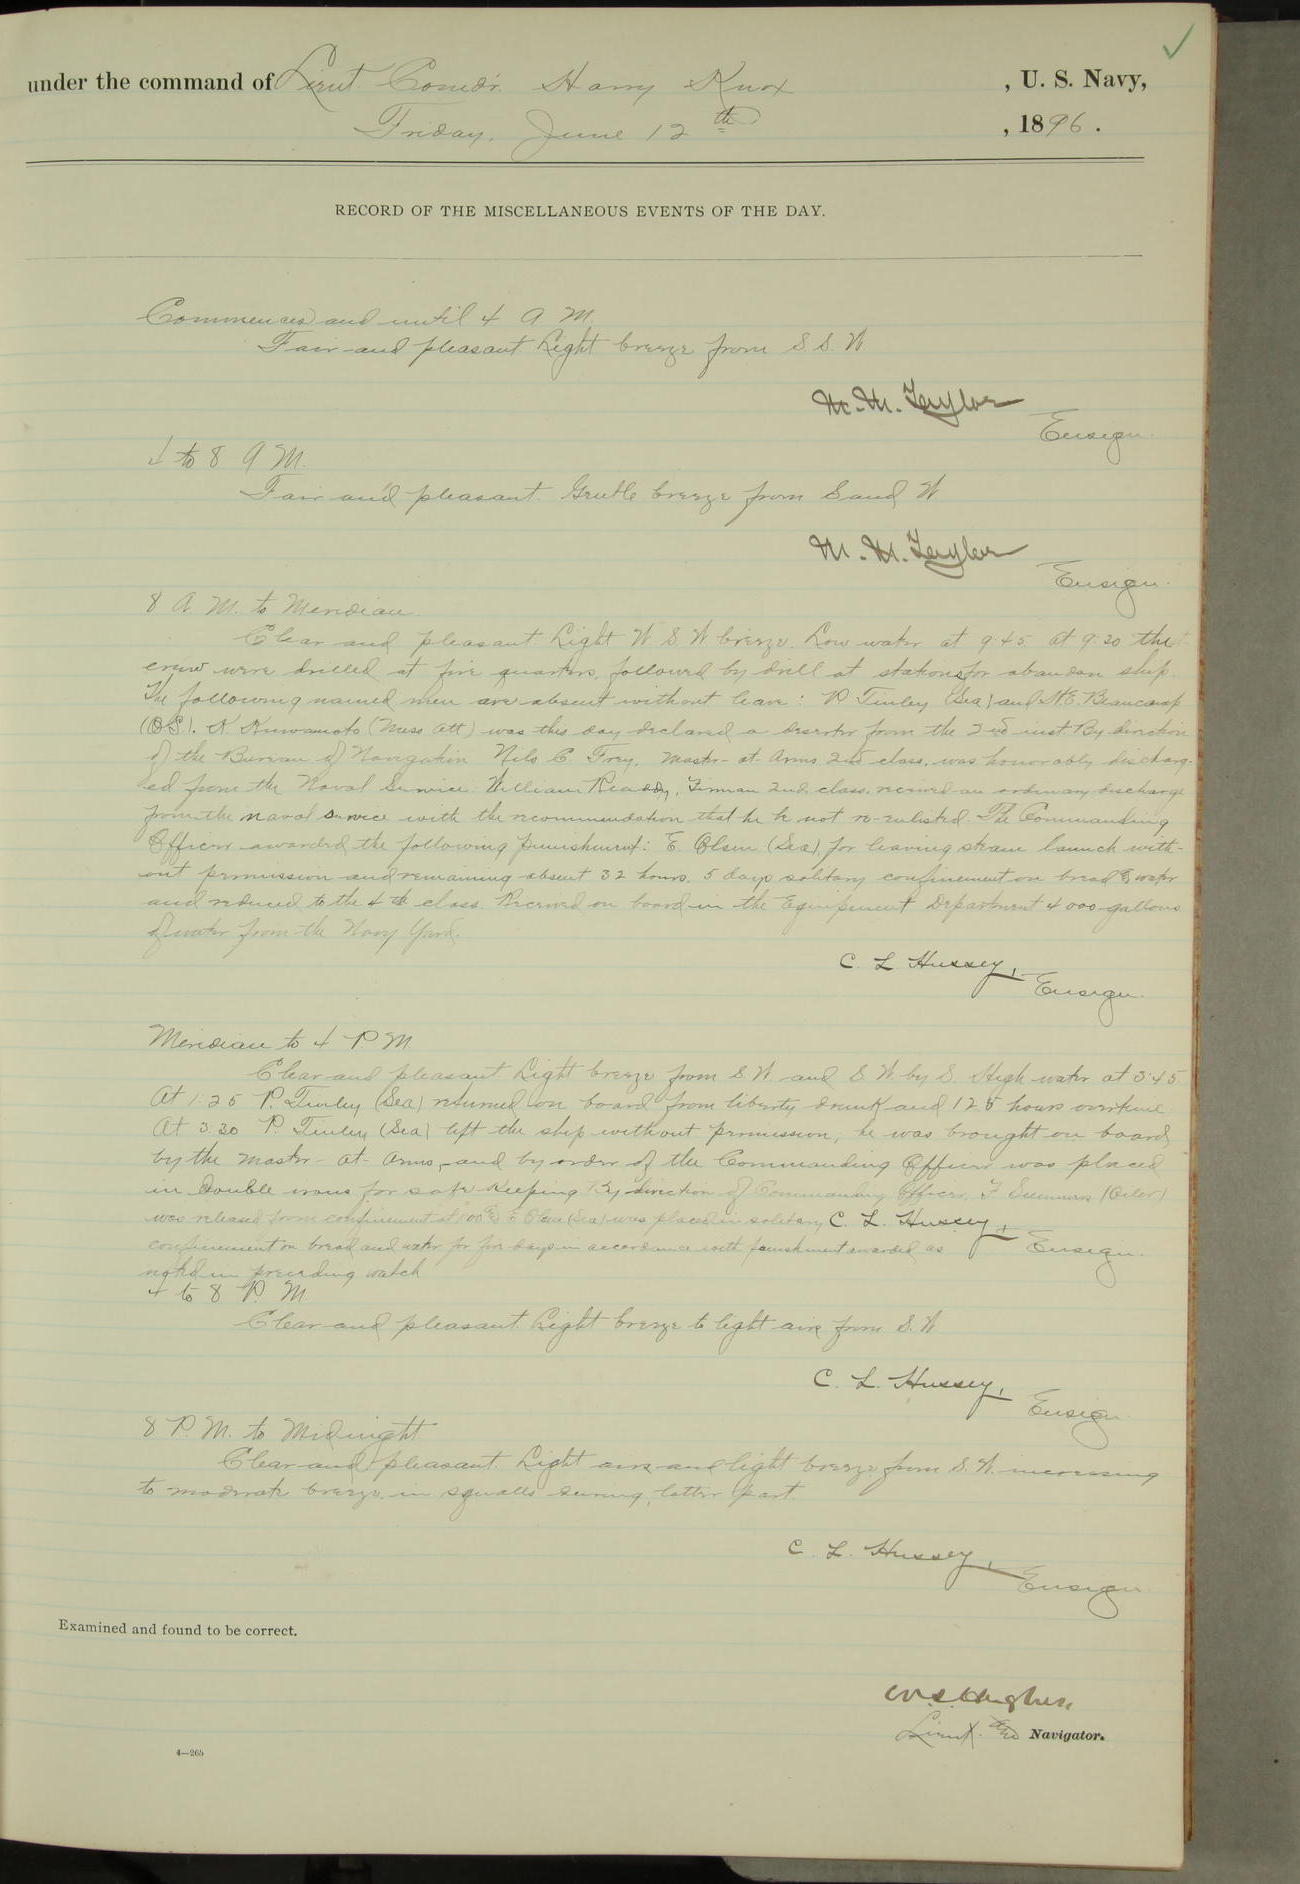 under the command of Lieut Comdr. Harry Knox , U. S. Navy,
Friday, June 12th , 1896.
RECORD OF THE MISCELLANEOUS EVENTS OF THE DAY.
Commences and until 4 A M.
Fair and pleasant Light breeze from S S. W
M. M. Taylor
Ensign.
4 to 8 A M.
Fair and pleasant. Gentle breeze from S and W
M. M. Taylor
Ensign.
8 A. M. to Meridian
Clear and pleasant Light W S W breeze. Low water at 9.45. at 9.30 the
crew were drilled at fire quarters, followed by drill at stations for abandon ship.
The following named men are absent without leave: P. Tinley (Sea) and N. E. Beaucamp
(O S). K Kuwamoto (Mess Att) was this day declared a deserter from the 2nd inst. By direction
of the Bureau of Navigation Nils C. Frey, Master-at-Arms 2nd class, was honorably discharg-
ed from the Naval Service. William Readdy, Fireman 2nd class, received an ordinary discharge
from the naval service with the recommendation that he be not re-enlisted. The Commanding
Officer awarded the following punishment: E. Olsen (Sea), for leaving steam launch with-
out permission and remaining absent 32 hours, 5 days solitary confinement on bread & water
and reduced to the 4th class. Received on board in the Equipment Department 4000 gallons
of water from the Navy Yard.
C. L Hussey,
Ensign.
Meridian to 4 P M
Clear and pleasant Light breeze from S. W and S. W. by S. High water at 3.45
At 1.25 P. Tinley (Sea) returned on board from liberty drunk and 125 hours overtime
At 3.30 P. Tinley (Sea) left the ship without permission, he was brought on board
by the Master-at-Arms, and by order of the Commanding Officer was placed
in double irons for safe keeping By direction of Commanding Officer, F Summers (Oiler)
was released from confinement at 1.00 & E Olsen (Sea) was placed in solitary C. L. Hussey,
confinement on bread and water for five days in accordance with punishment awarded as Ensign.
noted in preceding watch
4 to 8 P. M
Clear and pleasant. Light breeze to light airs from S. W
C. L. Hussey,
Ensign
8 P. M. to Midnight
Clear and pleasant. Light airs and light breeze from S. W. increasing
to moderate breeze in squalls during latter part.
C. L. Hussey,
Ensign
Examined and found to be correct.
W. S. Hughes.
Lieut. and Navigator.
4—265